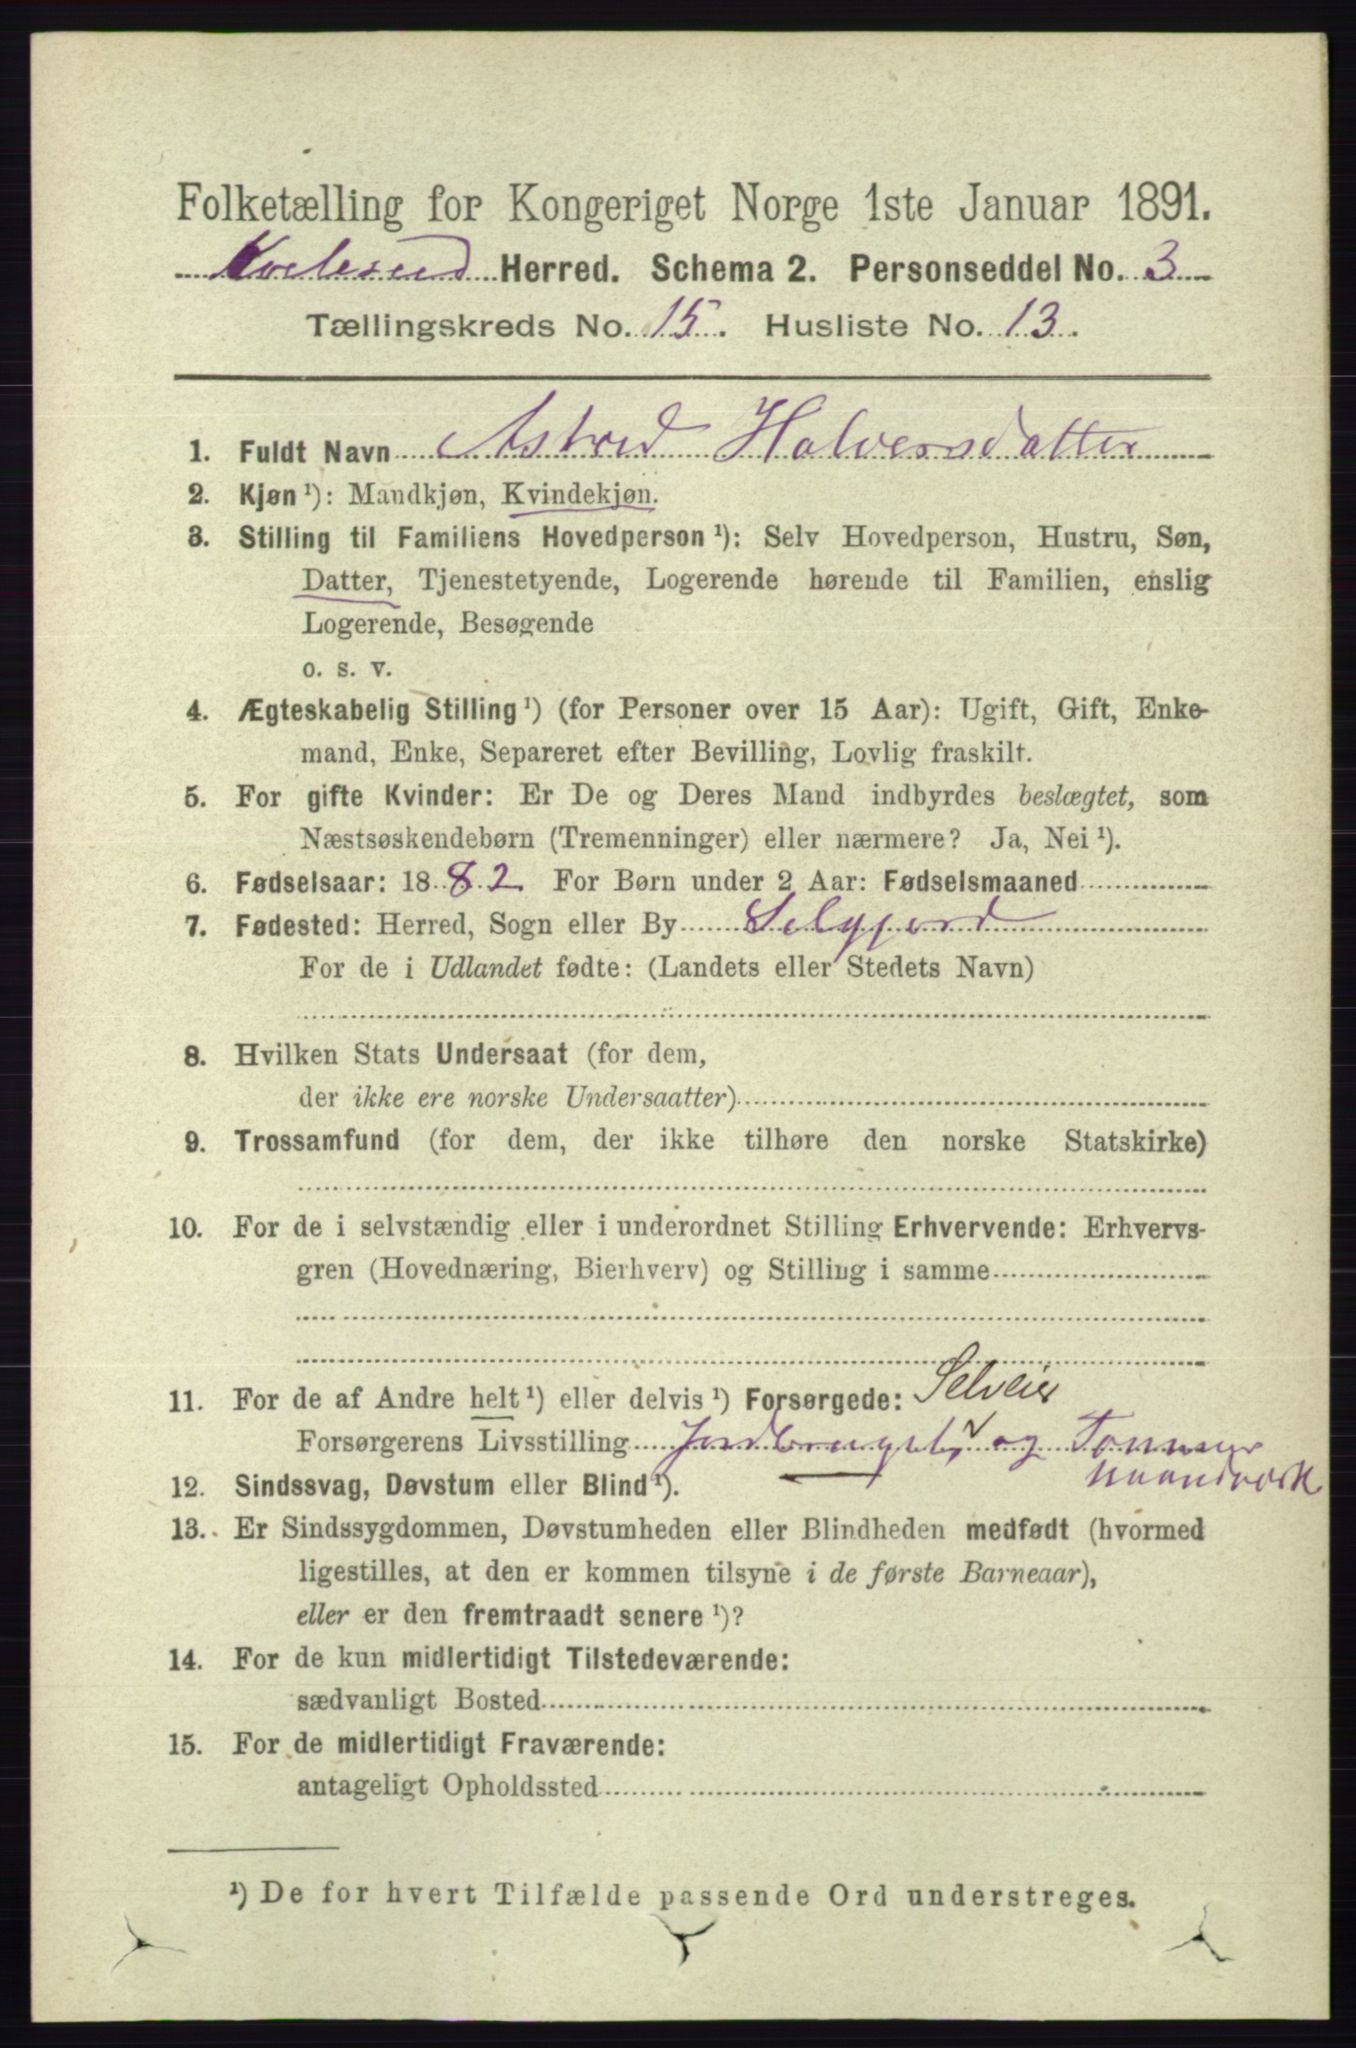 Folketælling for Kongeriget Norge 1ste Januar 1891.
Herred. Schema 2. Personseddel No. 3
Tællingskreds No. 15. Husliste No. 13.
1. Fuldt Navn Astred Halversdatter
2. Kjøn ¹): Mandkjøn, Kvindekjøn.
3. Stilling til Familiens Hovedperson ¹): Selv Hovedperson, Hustru, Søn,
Datter, Tjenestetyende, Logerende hørende til Familien, enslig
Logerende, Besøgende
o. s. v.
4. Ægteskabelig Stilling ¹) (for Personer over 15 Aar): Ugift, Gift, Enke-
mand, Enke, Separeret efter Bevilling, Lovlig fraskilt.
5. For gifte Kvinder: Er De og Deres Mand indbyrdes beslægtet, som
Næstsøskendebørn (Tremenninger) eller nærmere? Ja, Nei ¹).
6. Fødselsaar: 1882 For Børn under 2 Aar: Fødselsmaaned
7. Fødested: Herred, Sogn eller By Selgjord
For de i Udlandet fødte: (Landets eller Stedets Navn)
8. Hvilken Stats Undersaat (for dem,
der ikke ere norske Undersaatter)
9. Trossamfund (for dem, der ikke tilhøre den norske Statskirke)
10. For de i selvstændig eller i underordnet Stilling Erhvervende: Erhvervs-
gren (Hovednæring, Bierhverv) og Stilling i samme
11. For de af Andre helt ¹) eller delvis ¹) Forsørgede: Selveier
Forsørgerens Livsstilling Jordbruget, og Tømmer
12. Sindssvag, Døvstum eller Blind ¹).
13. Er Sindssygdommen, Døvstumheden eller Blindheden medfødt (hvormed
ligestilles, at den er kommen tilsyne i de første Barneaar),
eller er den fremtraadt senere ¹)?
14. For de kun midlertidigt Tilstedeværende:
sædvanligt Bosted
15. For de midlertidigt Fraværende:
antageligt Opholdssted
¹) De for hvert Tilfælde passende Ord understreges.